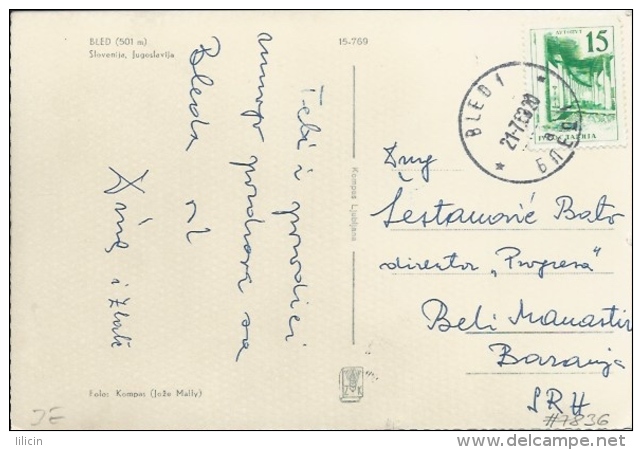 BLED (501 m)
Slovenija, Jugoslavija
15-769
Tebi i porodici
mnogo pozdrava sa
Bleda
i
Foto: Kompas (Jože Mally)
Kompas Ljubljana
15
BLED 1
21-7.63.20
a
БЛЕД 1
Drug
Šestanović Bato
direktor „Progresa"
Beli Manastir
Baranja
SRH
#7836
JE
lilicin
www.delcampe.net